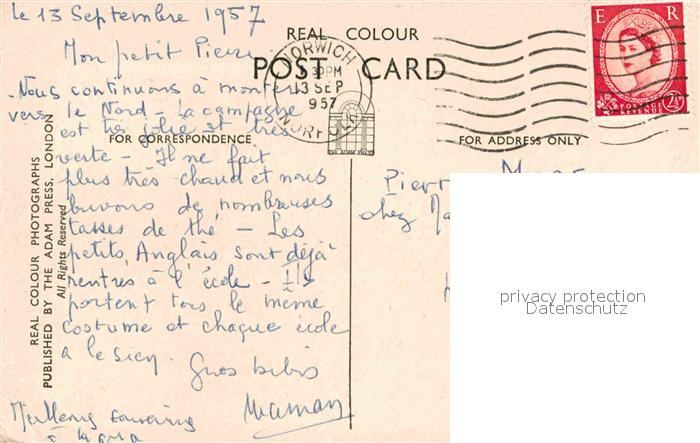 le 13 Septembre 1957
Mon petit Pierre
- Nous continuons à monter
vers le Nord - La campagne
est très jolie et très
verte - Il ne fait
plus très chaud et nous
buvons de nombreuses
tasses de thé - Les
petits Anglais sont déjà
rentrés à l'école - Ils
portent tous le même
costume et chaque école
a le sien. Gros bibis
Maman
Meilleurs souvenirs
à
REAL COLOUR
POST CARD
FOR CORRESPONDENCE
FOR ADDRESS ONLY
REAL COLOUR PHOTOGRAPHS
PUBLISHED BY THE ADAM PRESS, LONDON
All Rights Reserved
NORWICH
30PM
13 SEP
1957
NORFOLK
E R
POSTAGE
REVENUE
2½
Pierre
chez
privacy protection
Datenschutz